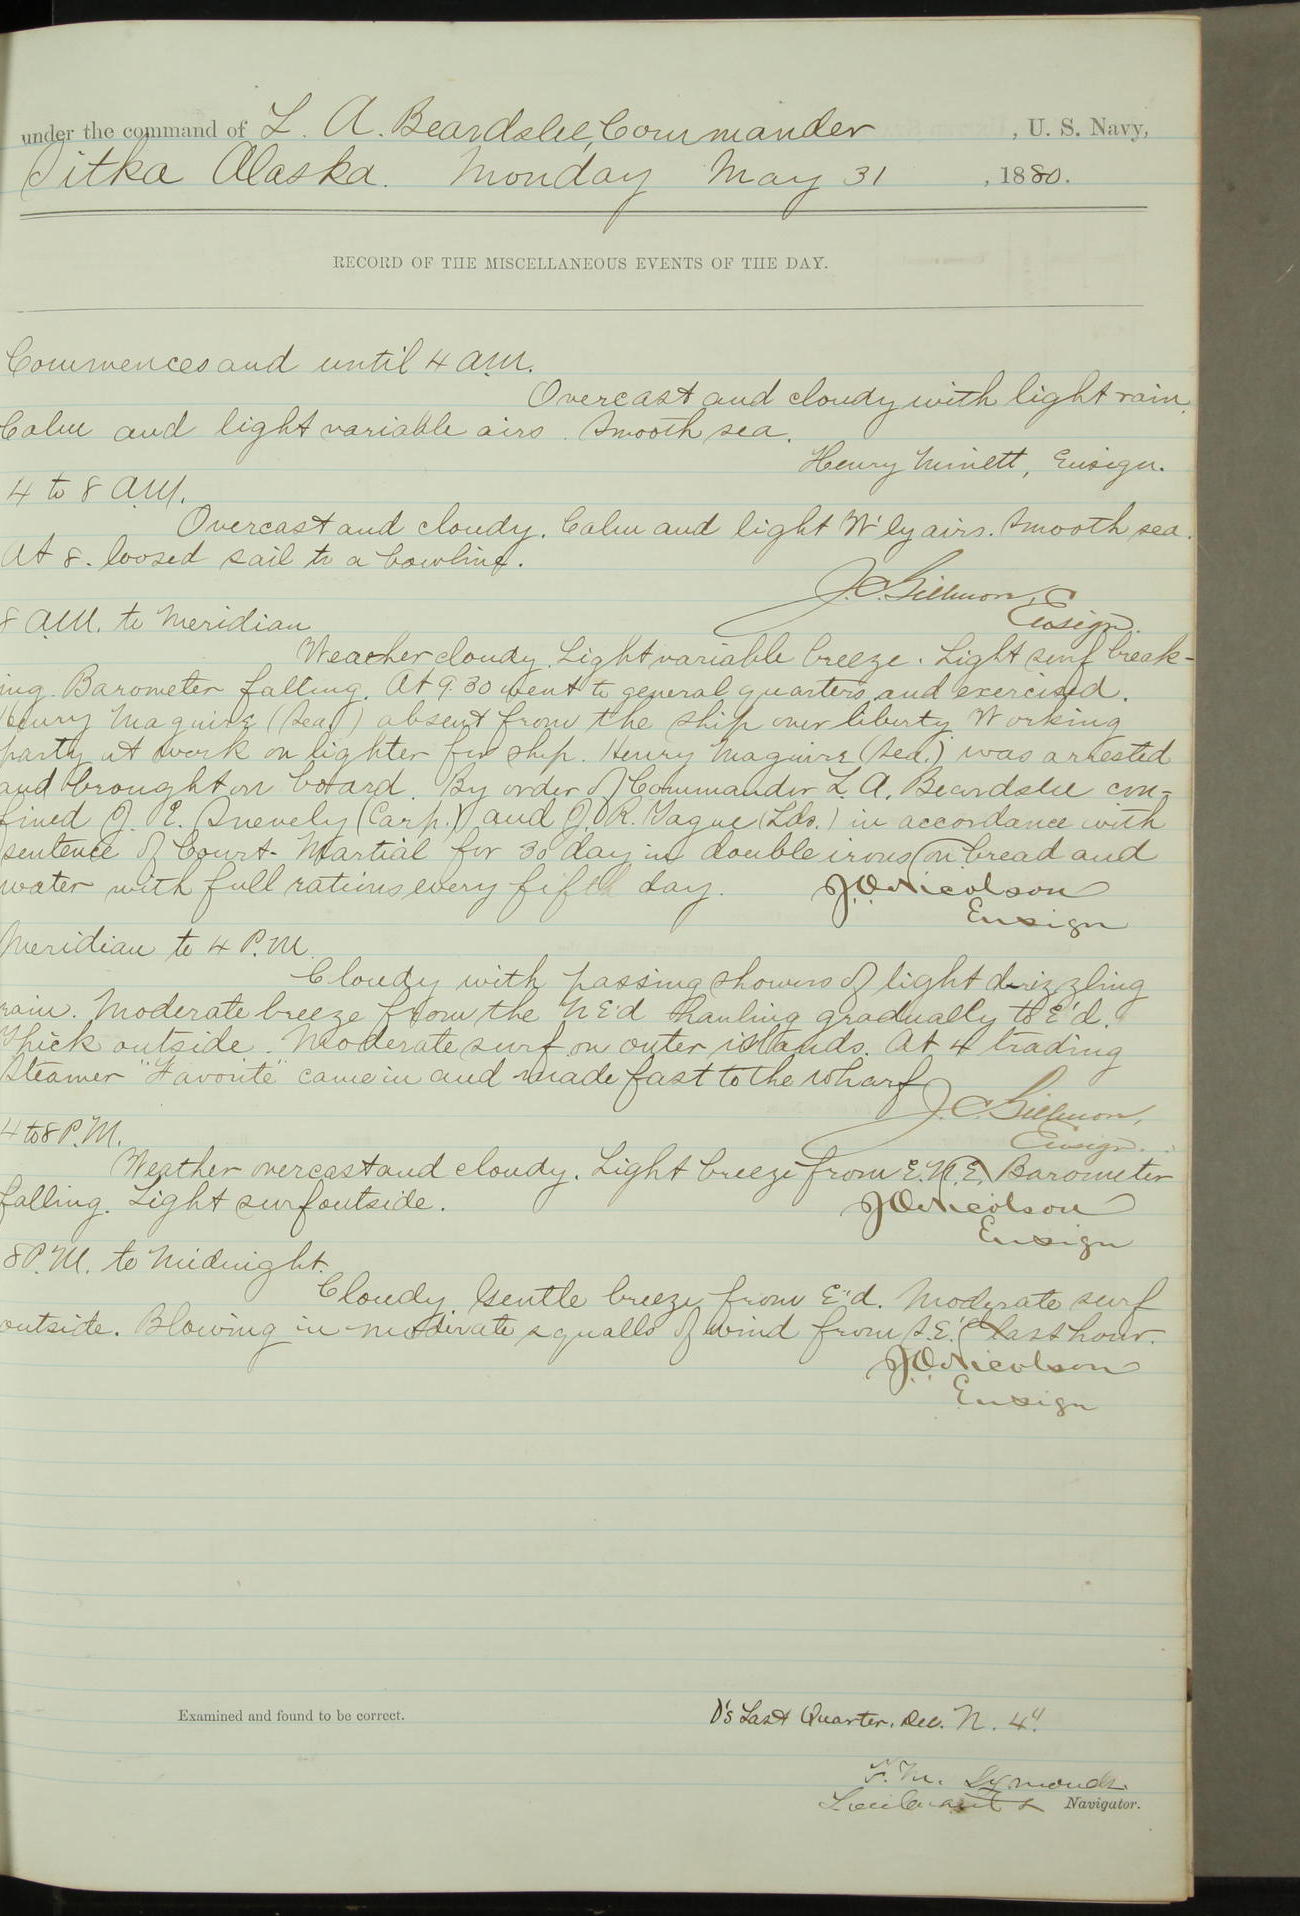 under the command of L. A. Beardslee, Commander, U. S. Navy,
Sitka Alaska. Monday May 31, 1880.
RECORD OF THE MISCELLANEOUS EVENTS OF THE DAY.
Commences and until 4 A.M.
Overcast and cloudy with light rain.
Calm and light variable airs. Smooth sea.
Henry Minett, Ensign.
4 to 8 A.M.
Overcast and cloudy. Calm and light W'ly airs. Smooth sea.
At 8. loosed sail to a bowline.
J. C. Gillmore,
Ensign.
8 A.M. to Meridian
Weather cloudy. Light variable breeze. Light surf break-
ing. Barometer falling. At 9.30 went to general quarters and exercised.
Henry Maguire (Sea.) absent from the ship over liberty. Working
party at work on lighter for ship. Henry Maguire (Sea.) was arrested
and brought on board. By order of Commander L. A. Beardslee con-
fined J. E. Snevely (Carp.) and J. R. Hague (Lds.) in accordance with
sentence of Court-Martial for 30 day in double irons on bread and
water with full rations every fifth day.
J. O. Nicolson
Ensign
Meridian to 4 P.M.
Cloudy with passing showers of light drizzling
rain. Moderate breeze from the NE'd hauling gradually to E'd.
Thick outside. Moderate surf on outer islands. At 4 trading
Steamer "Favorite" came in and made fast to the wharf.
J. C. Gillmore,
Ensign.
4 to 8 P.M.
Weather overcast and cloudy. Light breeze from E.N.E. Barometer
falling. Light surf outside.
J. O. Nicolson
Ensign
8 P.M. to Midnight.
Cloudy. Gentle breeze from E'd. Moderate surf
outside. Blowing in moderate squalls of wind from S.E. last hour.
J. O. Nicolson
Ensign
Examined and found to be correct.
D's Last Quarter. Dec. N. 4
F. M. Symonds.
Lieutenant & Navigator.